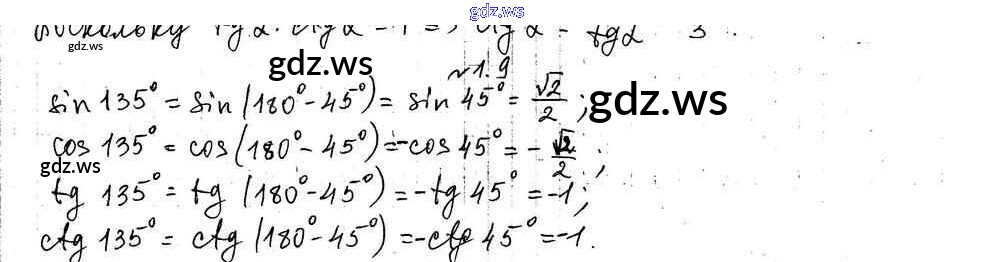 gdz.ws
Поскольку tg α · ctg α = 1 => ctg α = tg α 3
gdz.ws
gdz.ws
№1.9
sin 135° = sin (180° - 45°) = sin 45° = √2/2 ; gdz.ws
cos 135° = cos (180° - 45°) = -cos 45° = - √2/2 ;
gdz.ws
tg 135° = tg (180° - 45°) = -tg 45° = -1;
ctg 135° = ctg (180° - 45°) = -ctg 45° = -1.